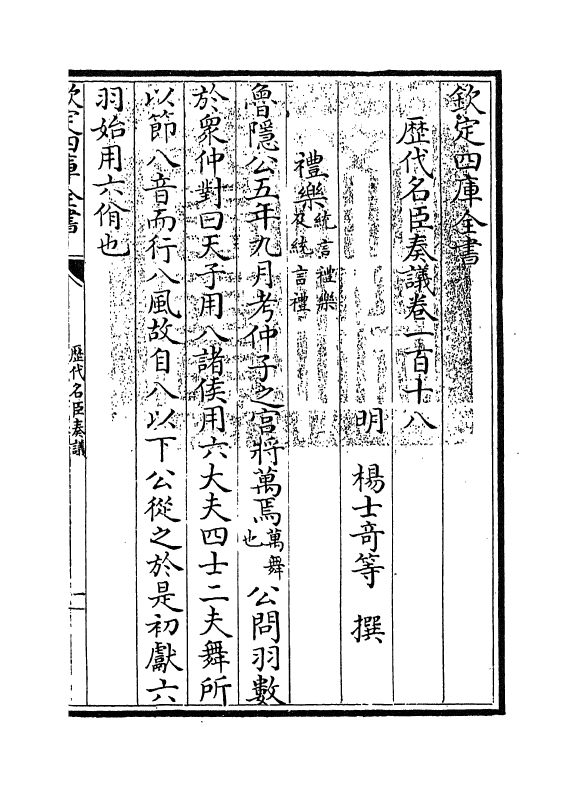 欽定四庫全書
歷代名臣奏議卷一百十八
明 楊士竒等 撰
禮樂統言禮樂及統言禮
魯隱公五年九月考仲子之宫將萬焉萬舞也公問羽數
於衆仲對曰天子用八諸侯用六大夫四士二夫舞所
以節八音而行八風故自八以下公從之於是初獻六
羽始用六佾也
欽定四庫全書
歷代名臣奏議
一